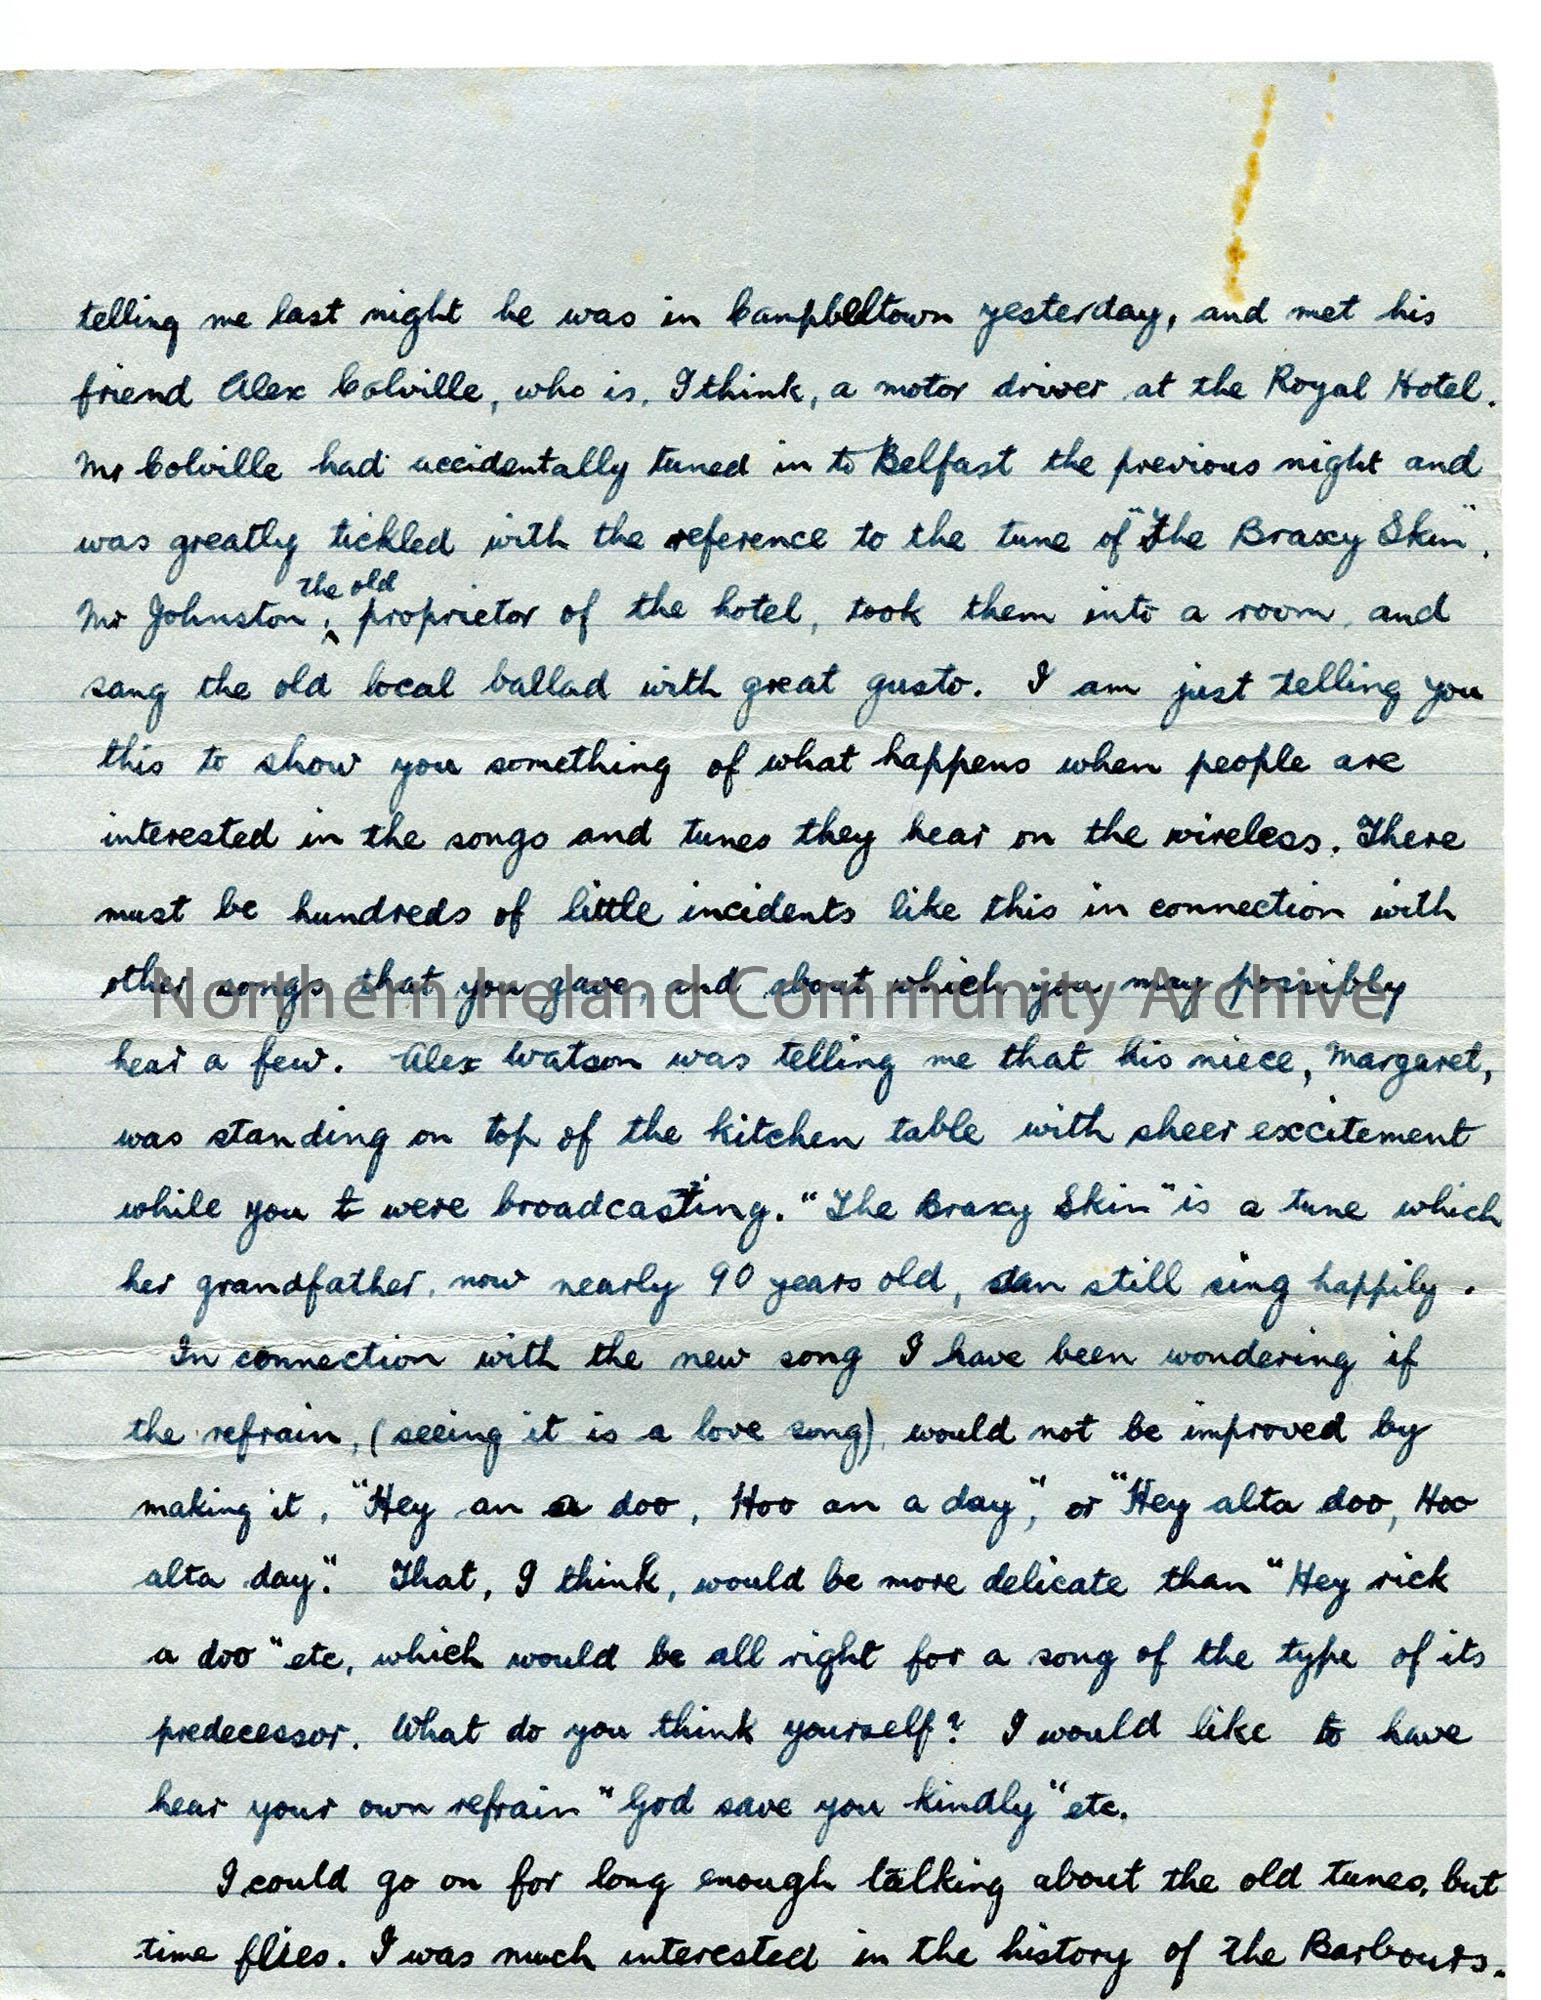 telling me last night he was in Campbeltown yesterday, and met his
friend Alex Colville, who is, I think, a motor driver at the Royal Hotel.
Mr Colville had accidentally tuned in to Belfast the previous night and
was greatly tickled with the reference to the tune of "The Braxy Skin".
the old
Mr Johnston, ^ proprietor of the hotel, took them into a room, and
sang the old local ballad with great gusto. I am just telling you
this to show you something of what happens when people are
interested in the songs and tunes they hear on the wireless. There
must be hundreds of little incidents like this in connection with
other songs that you gave, and about which you may possibly
Northern Ireland Community Archive
hear a few. Alex Watson was telling me that his niece, Margaret,
was standing on top of the kitchen table with sheer excitement
while you t were broadcasting. "The Braxy Skin" is a tune which
her grandfather, now nearly 90 years old, can still sing happily.
In connection with the new song I have been wondering if
the refrain, (seeing it is a love song), would not be improved by
making it, "Hey an a doo, Hoo an a day", or "Hey alta doo, Hoo
alta day". That, I think, would be more delicate than "Hey rick
a doo" etc, which would be all right for a song of the type of its
predecessor. What do you think yourself? I would like to have
hear your own refrain "God save you kindly" etc.
I could go on for long enough talking about the old tunes, but
time flies. I was much interested in the history of the Barbours.